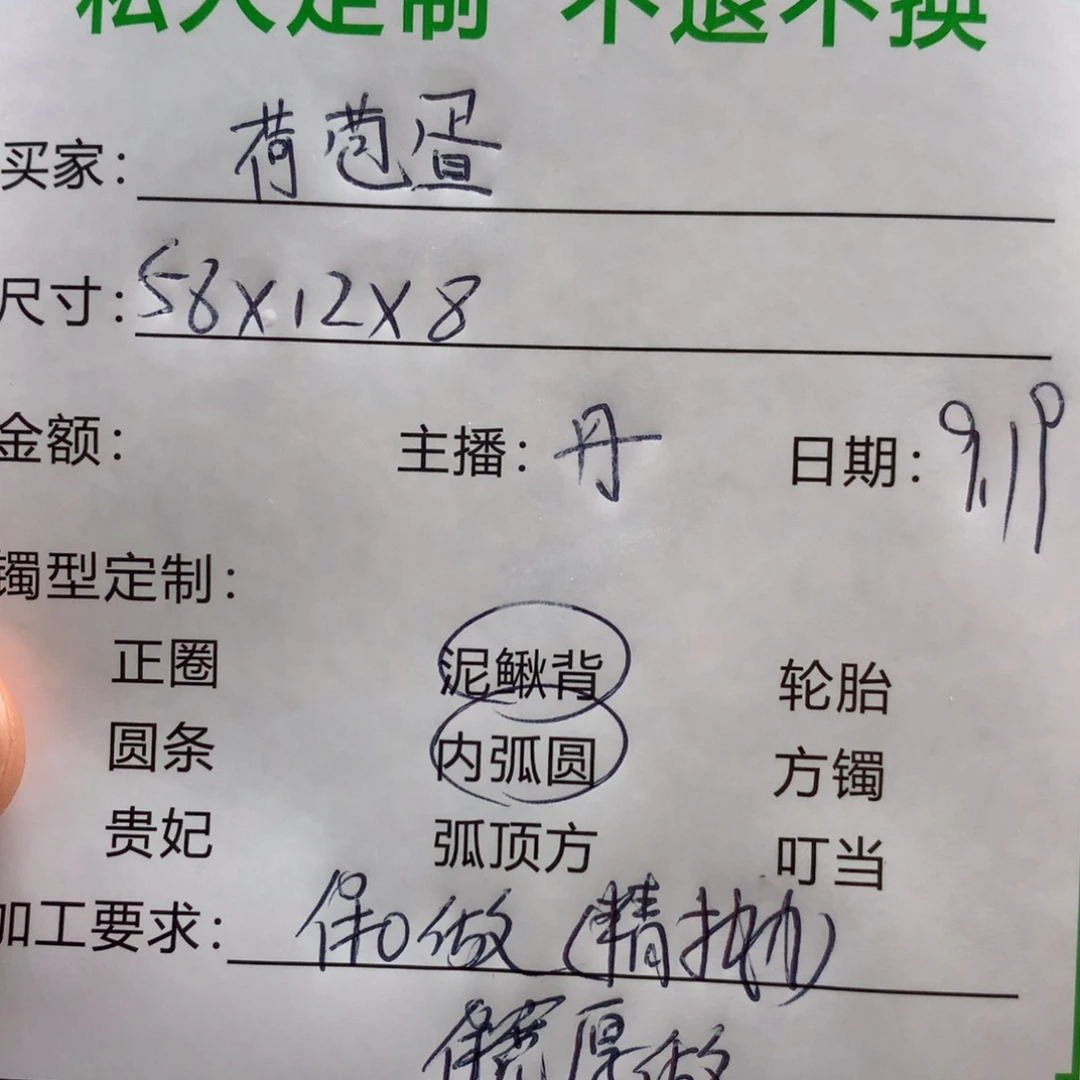 私人定制 不退不换
买家：荷苞蛋
尺寸：58X12X8
金额： 主播：丹 日期：9.19
镯型定制：
正圈 泥鳅背 轮胎
圆条 内弧圆 方镯
贵妃 弧顶方 叮当
加工要求：保口做（精抛）
保宽厚做